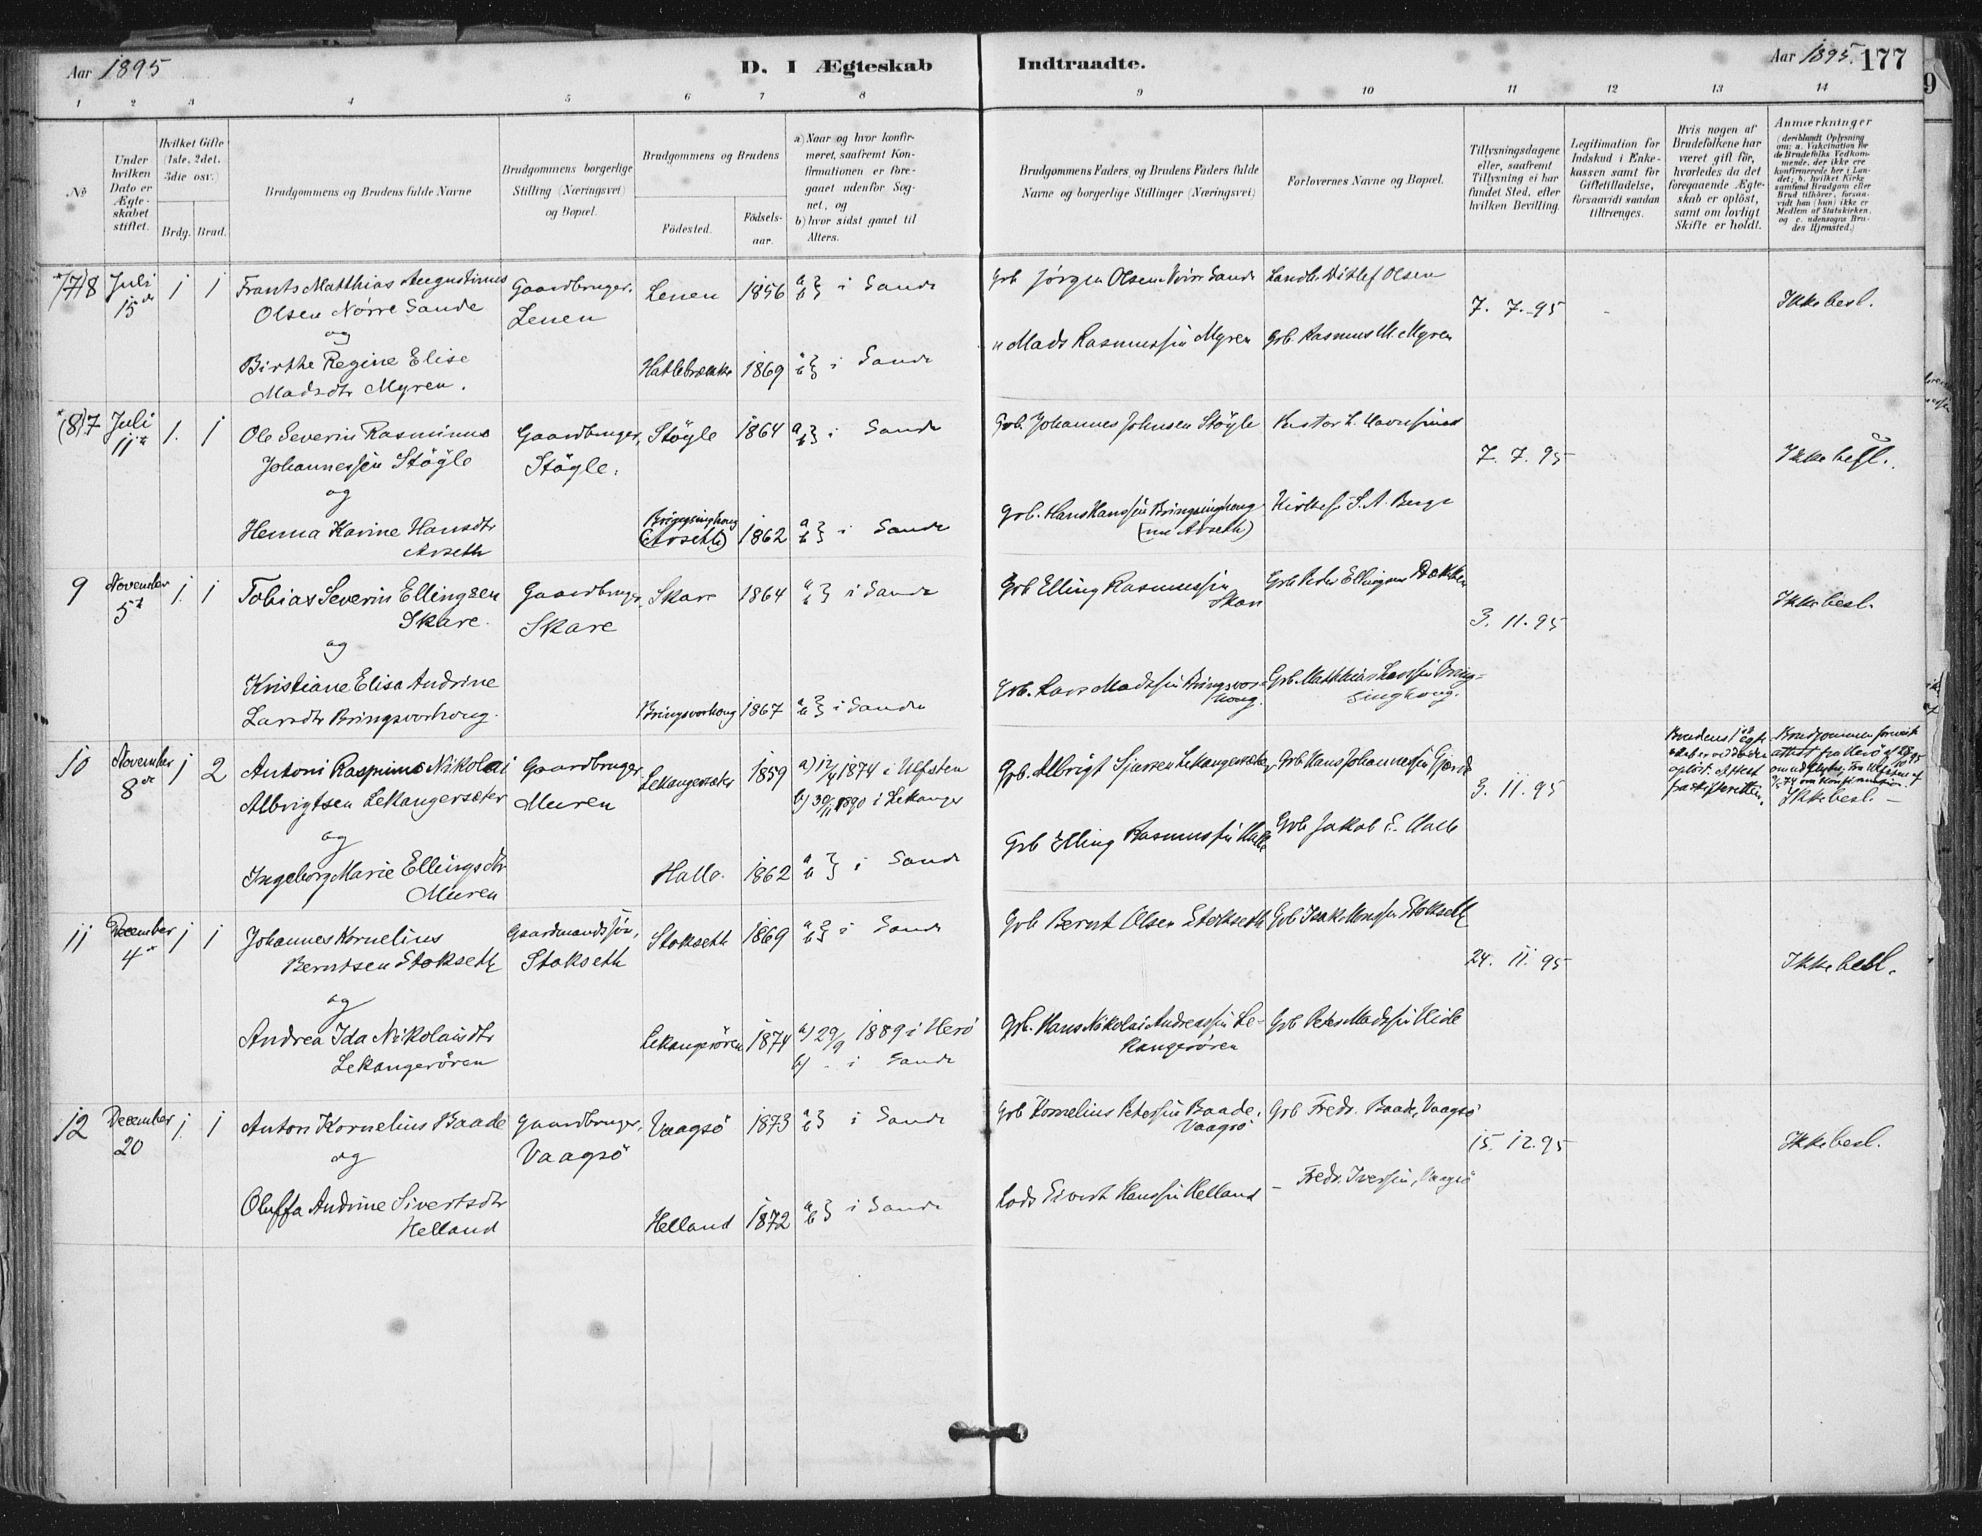 Aar 1895
D. I Ægteskab
Indtraadte.
Aar 1895. 177
1 2 3 4 5 6 7 8 9 10 11 12 13 14
No
Under hvilken Dato er Ægteskabet stiftet.
Hvilket Gifte (1ste, 2det, 3die osv.)
Brdg. Brud.
Brudgommens og Brudens fulde Navne
Brudgommens borgerlige Stilling (Næringsvei) og Bopæl.
Brudgommens og Brudens
Födested.
Födselsaar.
a) Naar og hvor konfirmeret, saafremt Konfirmationen er foregaaet udenfor Sognet, og
b) hvor sidst gaaet til Alters.
Brudgommens Faders og Brudens Faders fulde Navne og borgerlige Stillinger (Næringsvei)
Forlovernes Navne og Bopæl.
Tillysningsdagene eller, saafremt Tillysning ei har fundet Sted, efter hvilken Bevilling.
Legitimation for Indskud i Enkekassen samt for Giftetilladelse, forsaavidt saadan tiltrænges.
Hvis nogen af Brudefolkene har været gift för, hvorledes da det foregaaende Ægteskab er oplöst, samt om lovligt Skifte er holdt.
Anmærkninger
(deriblandt Oplysning om: a. Vakcination for de Brudefolks Vedkommende, der ikke ere konfirmerede her i Landet; b. hvilket Kirkesamfund Brudgom eller Brud tilhörer, forsaavidt han (hun) ikke er Medlem af Statskirken, og c. udensogns Brudes Hjemsted.)
(7) 8 Juli 15de 1 1 Frants Matthias Augustinus Gaardbruger. Lenen 1856 a b } i Sande Grb Jørgen Olsen Nörr Sande Landh. Ditlef Olsen
Olsen Nørre Sande Lenen 7. 7. 95 Ikke besl.
og
Birthe Regine Elise Hatlebrække 1869 a b } i Sande " Mads Rasmussen Myren Grb. Rasmus M. Myren
Madsdtr Myren.
(8) 7 Juli 11te 1. 1 Ole Severin Rasminus Gaardbruger, Støyle 1864 a b } i Sande Grb. Johannes Johnsen Støyle
Johannessen Støyle Støyle. 7. 7. 95 Ikke besl.
og
Henna Karine Hansdtr Bringsinghoug (Arseth) 1862 a b } i Sande Grb. Hans Hanssen Bringsinghoug Kirkes. S. A. Berge
Arseth (nu Arseth)
9 November 5te 1. 1 Tobias Severin Ellingsen Gaardbruger, Skare 1864 a b } i Sande Grb Elling Rasmussen Grb Peder Ellingsen Dokken
Skare. Skare Skare 3. 11. 95 Ikke besl.
og
Kristiane Elisa Andrine Bringsvorhoug 1867 a b } i Sande Grb. Lars Madssen Bringsvor- Grb. Matthias Larssen Bring-
Larsdtr Bringsvorhoug. houg. singhoug.
10 November 8de 1 2 Antoni Rasmus Nikolai Gaardbruger Lekangersæter 1859 a) 12/4 1874 i Ulfsten Grb. Albrigt Sjursen Lekangersæter Grb Hans Johannessen Gjerde
Albrigtsen Lekangersæter Muren b) 30/11 1890 i Lekanger 3. 11. 95 Ikke besl.
og
Ingeborg Marie Ellingsdtr Halle. 1862 a b } i Sande Grb Elling Rasmussen Halle Grb Jakob E. Halle
Muren
11 December 4de 1 1 Johannes Kornelius Gaardmandssøn, Stokseth 1869 a b } i Sande Grb Bernt Olsen Stokseth Grb Isak Monssen Stokseth
Berntsen Stokseth Stokseth 24. 11. 95 Ikke besl.
og
Andrea Ida Nikolaisdtr Lekangerören 1874 a) 29/9 1889 i Herö Grb. Hans Nikolai Andreassen Le- Grb Peter Madssen Eide
Lekangerören b) - i Sande kangerören
12 December 20 1. 1 Anton Kornelius Baade Gaardbruger, Vaagsö 1873 a b } i Sande Grb Kornelius Peterssen Baade, Grb Fredr. Baade, Vaagsö
og Vaagsö Vaagsö 15. 12. 95 Ikke besl.
Oluffa Andrine Sivertsdtr Helland 1872 a b } i Sande Lods Sivert Hanssen Helland - Fredr. Iverssen, Vaagsö
Helland